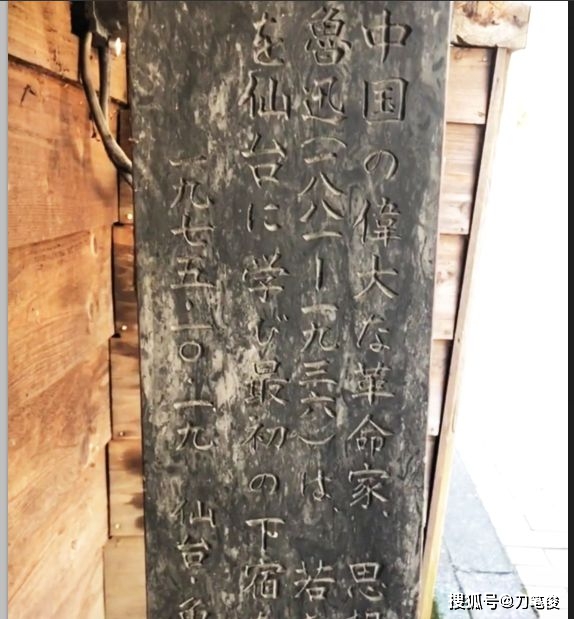 中国の偉大な革命家、思想
魯迅(一八八一ー一九三六)は、若
を仙台に学び最初の下宿
一九七五・一〇・一九 仙台・魯
搜狐号@刀笔俊